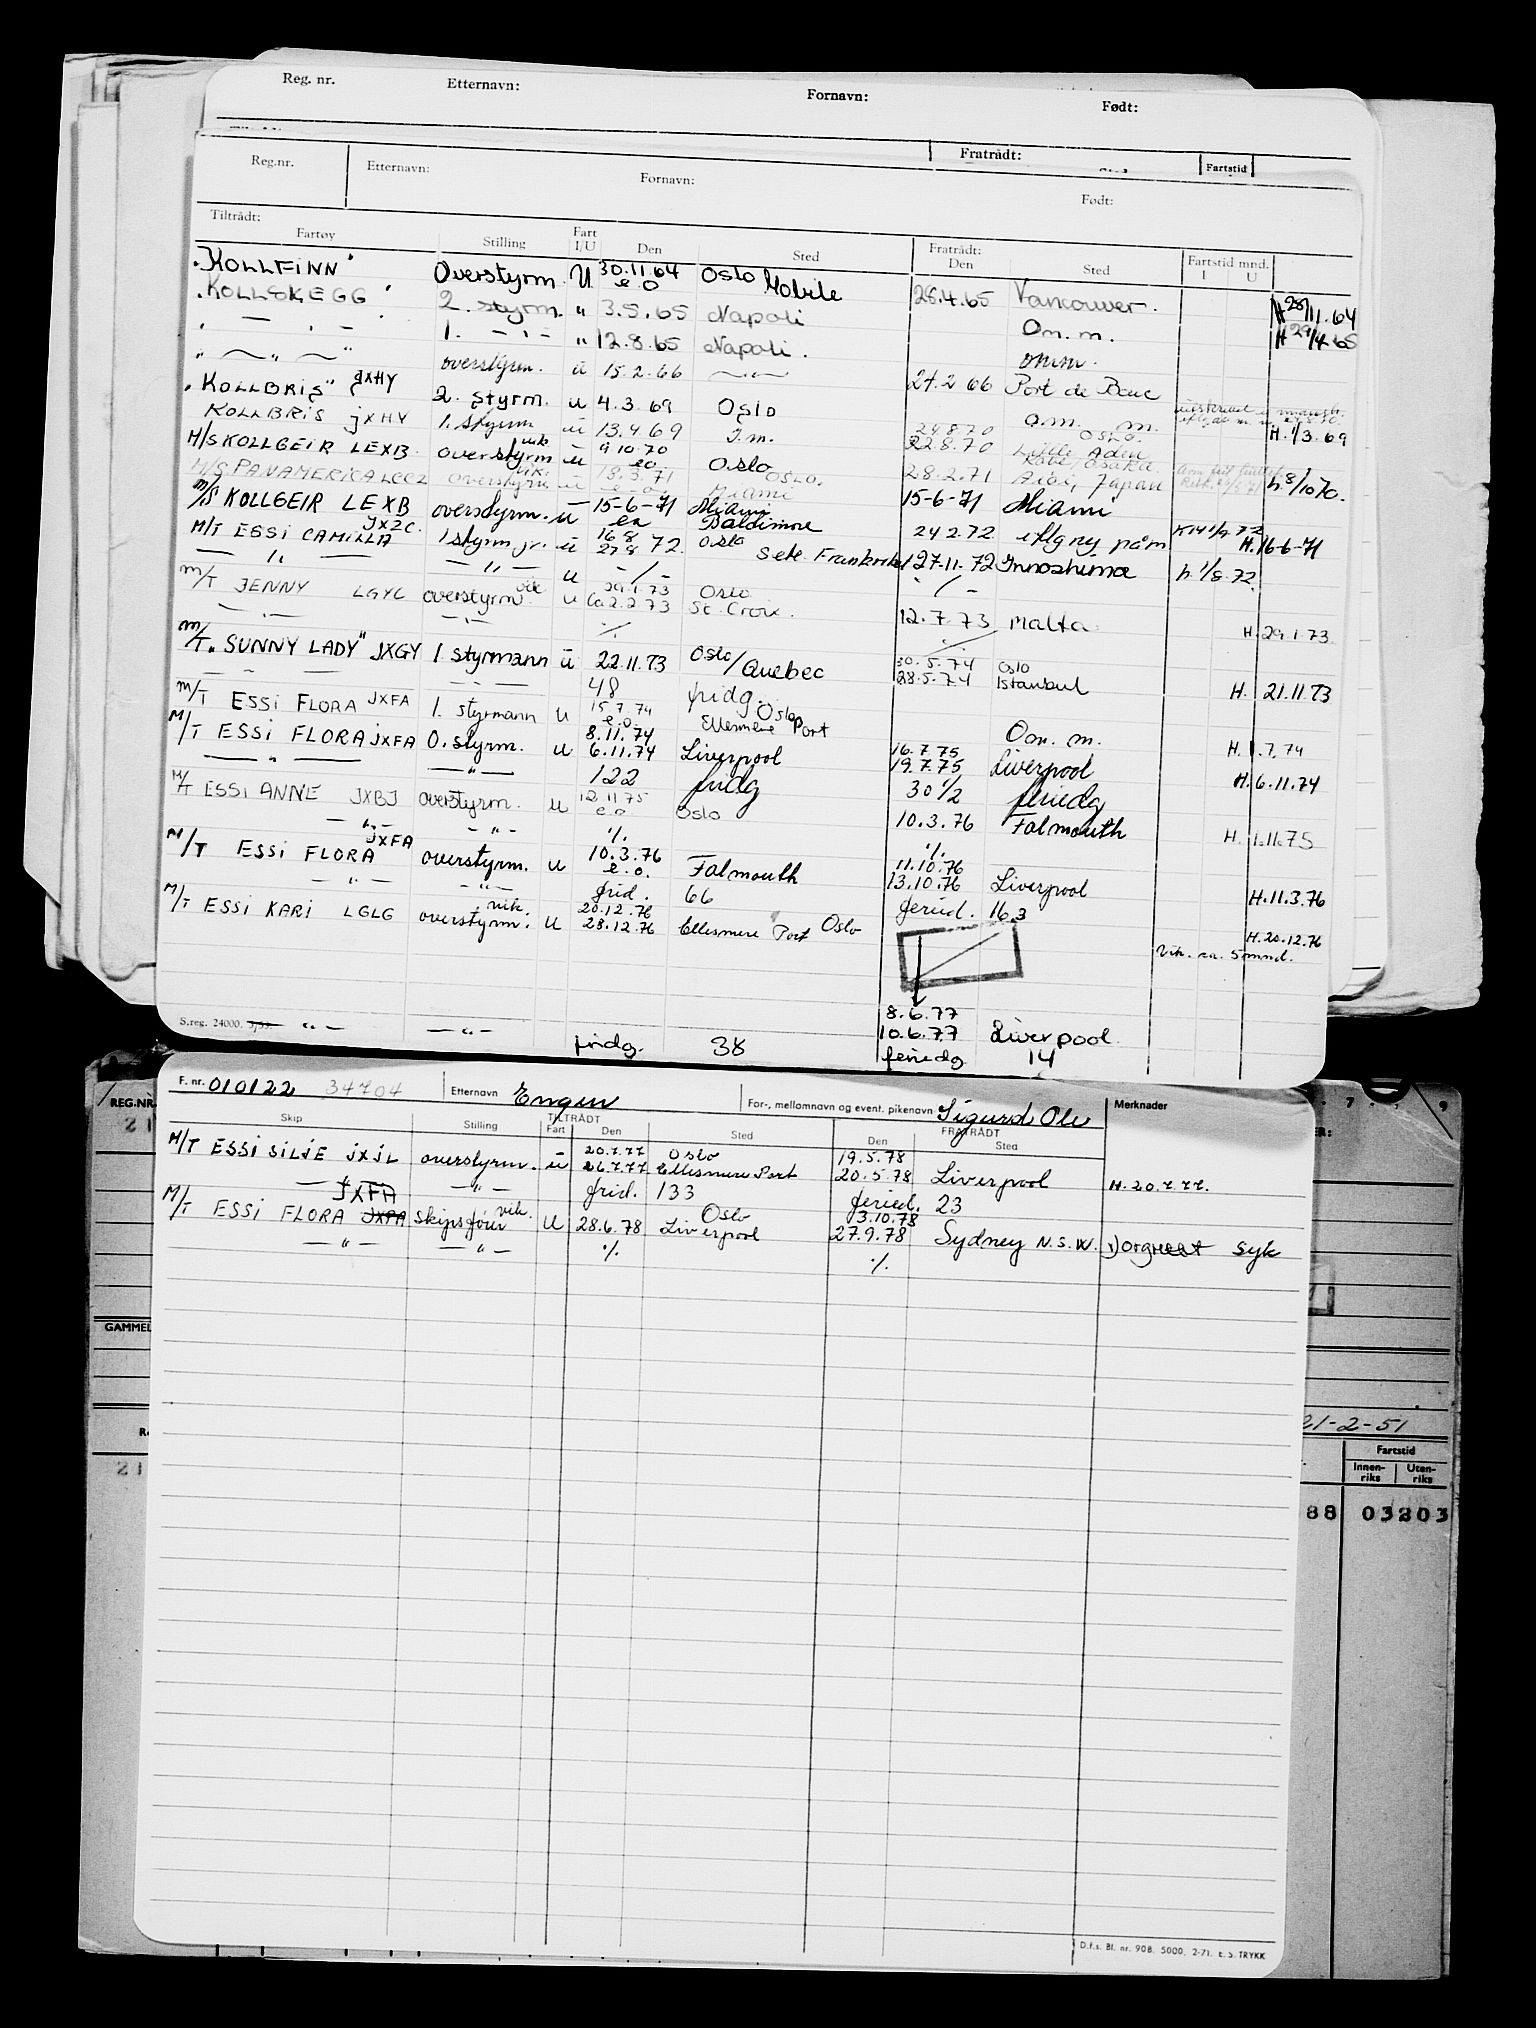 Reg. nr. Etternavn: Fornavn: Født:
Fratrådt: Fartstid
Reg.nr. Etternavn: Fornavn: Født:
Tiltrådt: Fratrådt: Fartstid mnd.
Fartøy Stilling Fart I/U Den Sted Den Sted I U
"KOLLFINN" Overstyrm. U 30.11.64 e.o Oslo Mobile 28.4.65 Vancouver. H 28/11.64
"KOLLSKEGG" 2. styrm. " 3.5.65 Napoli Om. m. H 29/4.65
" — " — 1. — " — " 12.8.65 Napoli. omm.
" — " — " overstyrm. u 15.2.66 — " — 24.2 66 Port de Bouc
"KOLLBRIS" JXHY 2. styrm. u 4.3.69 Oslo o.m. m. H. 1/3.69
KOLLBRIS JXHY 1. styrm u 13.4 69 I.m. 24.8.70 22.8.70 OSLO.
M/S KOLLGEIR LEXB. overstyrm vik u 9.10.70 e.o. Oslo 28.2.71 h. 8/10 70.
M/S PANAMERICA LCCZ overstyrm vik. u 18.3.71 OSLO. Miami
M/S KOLLGEIR LEXB overstyrm. u 15-6-71 Miami Baltimore 15-6-71 Miami H. 16-6-71
M/T ESSI CAMILLA JXZC. 1 styrm jr. u 16 8 27 8 72. Oslo Sete. Frankrike 24 2.72
— " — — " — u — / — 27.11.72 Innoshima h. 1/8.72
M/T JENNY LGYC overstyrm. vik u 29.1.73 Ca 2.2 73 Oslo. St. Croix. — / —
— " — — " — 12.7.73 Malta H. 29.1.73.
M/T "SUNNY LADY" JXGY 1. styrmann u 22.11.73 Oslo/Quebec 30.5.74 28.5.74 Oslo Istanbul H. 21.11.73
— " — — " — 48 fridg.
M/T ESSI FLORA JXFA 1. styrmann u 15.7.74 e.o. Oslo Ellesmere Port Om. m. H. 1.7.74
M/T ESSI FLORA JXFA O. styrm. u 8.11.74 6.11.74 Liverpool 16.7.75 19.7.75 Liverpool H. 6.11.74
— " — — " — 122 fridg 30 1/2 feriedg
M/T ESSI ANNE JXBJ overstyrm. u 12.11.75 e.o. Oslo 10.3.76 Falmouth H. 1.11.75
— " — — " — ./. ./.
M/T ESSI FLORA JXFA overstyrm. u 10.3.76 e.o. Falmouth 11.10.76 13.10.76 Liverpool H. 11.3.76
— " — — " — frid. 66 feried. 16.3
M/T ESSI KARI LGLG overstyrm. vik. U 20.12.76 28.12.76 Ellesmere Port Oslo H. 20.12.76
Vik. ca. 5 mnd.
8.6.77
S.reg. 24000. — " — — " — 10.6.77 Liverpool.
fridg. 38 feriedg 14
REG.NR. F. nr. 010122 34704 Etternavn Engen For-, mellomnavn og event. pikenavn Sigurd Ole Merknader
TILTRÅDT FRATRÅDT
Skip Stilling Fart Den Sted Den Sted
M/T ESSI SILJE JXJL overstyrm. u 20.7.77 26.7.77 Oslo Ellesmere Port 19.5.78 20.5.78 Liverpool H. 20.7.77.
— " — — " — frid. 133 feried. 23
M/T ESSI FLORA JXFA Skipsfører vik. U 28.6.78 Oslo Liverpool 3.10.78 27.9.78 Sydney N.S.W. syk
— " — — " — ./. ./.
GAMMEL
21-2-51
Fartstid
Innenriks Utenriks
21 88 03203
D.f.s. Bl. nr. 908. 5000. 2-71. E.S. TRYKK